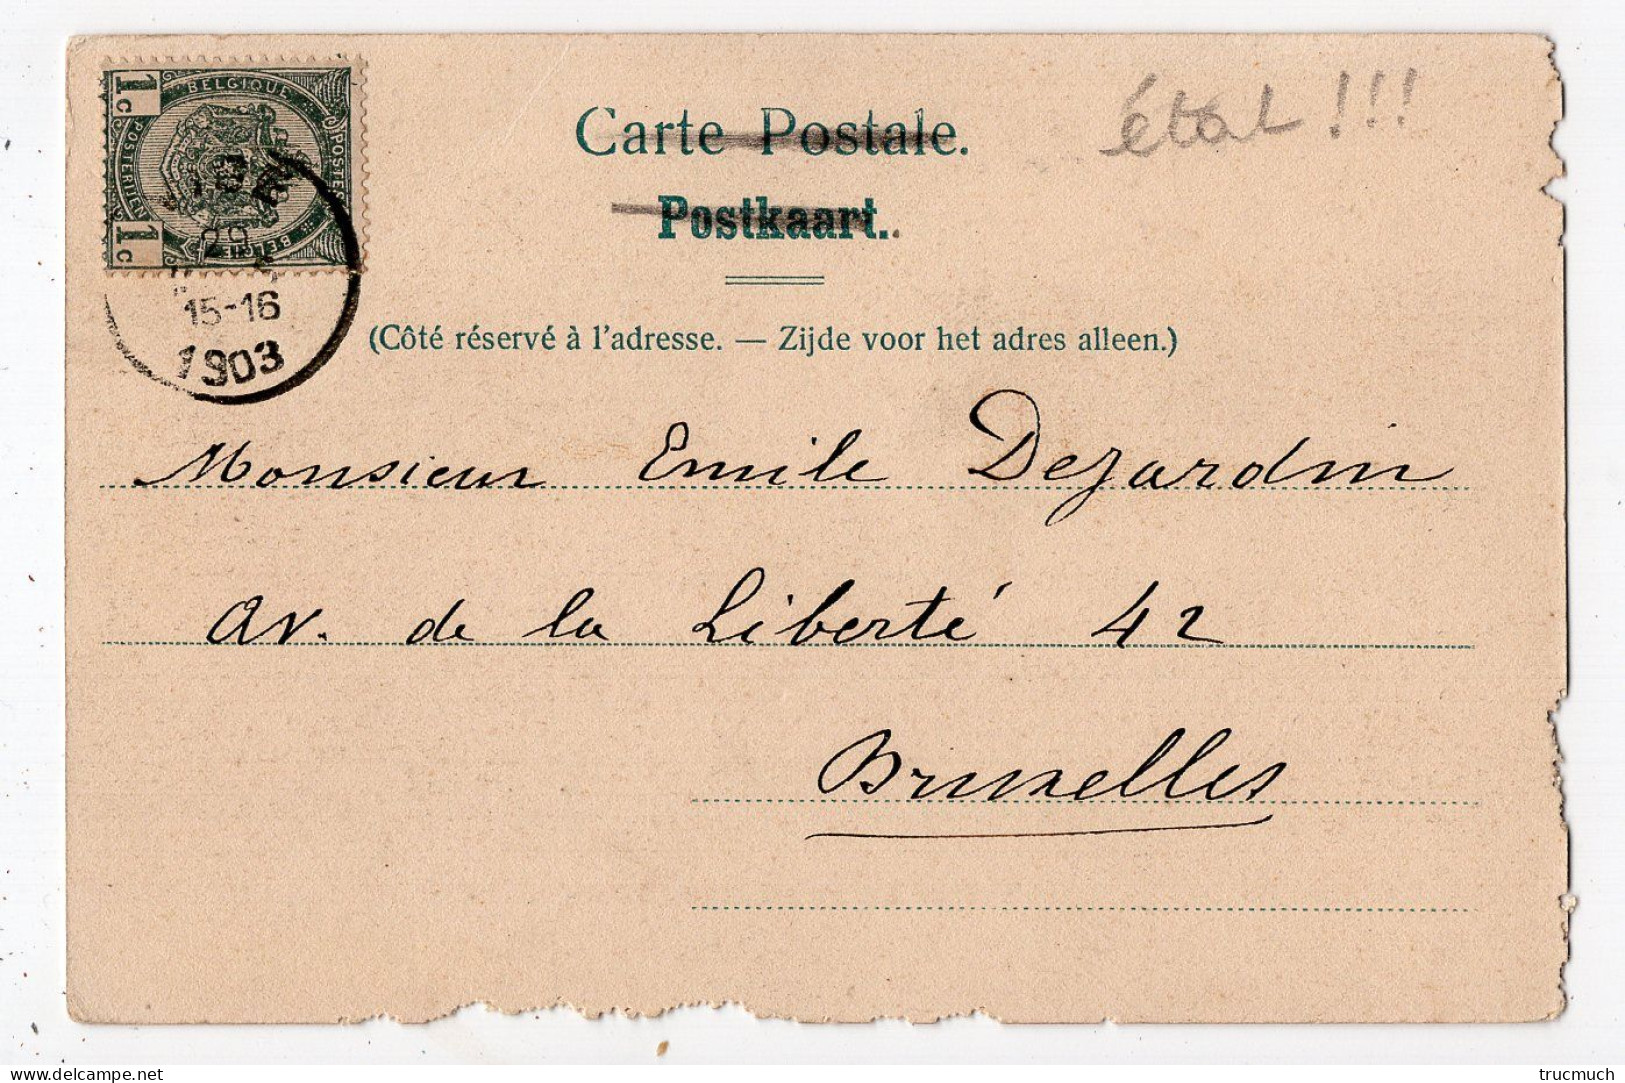 1c BELGIQUE 1c
POSTERIJEN POSTES
BELGIE
29
15-16
1903
Carte Postale.
Postkaart.
état !!!
(Côté réservé à l'adresse. — Zijde voor het adres alleen.)
Monsieur Emile Dejardin
av. de la Liberté 42
Bruxelles
trucmuch